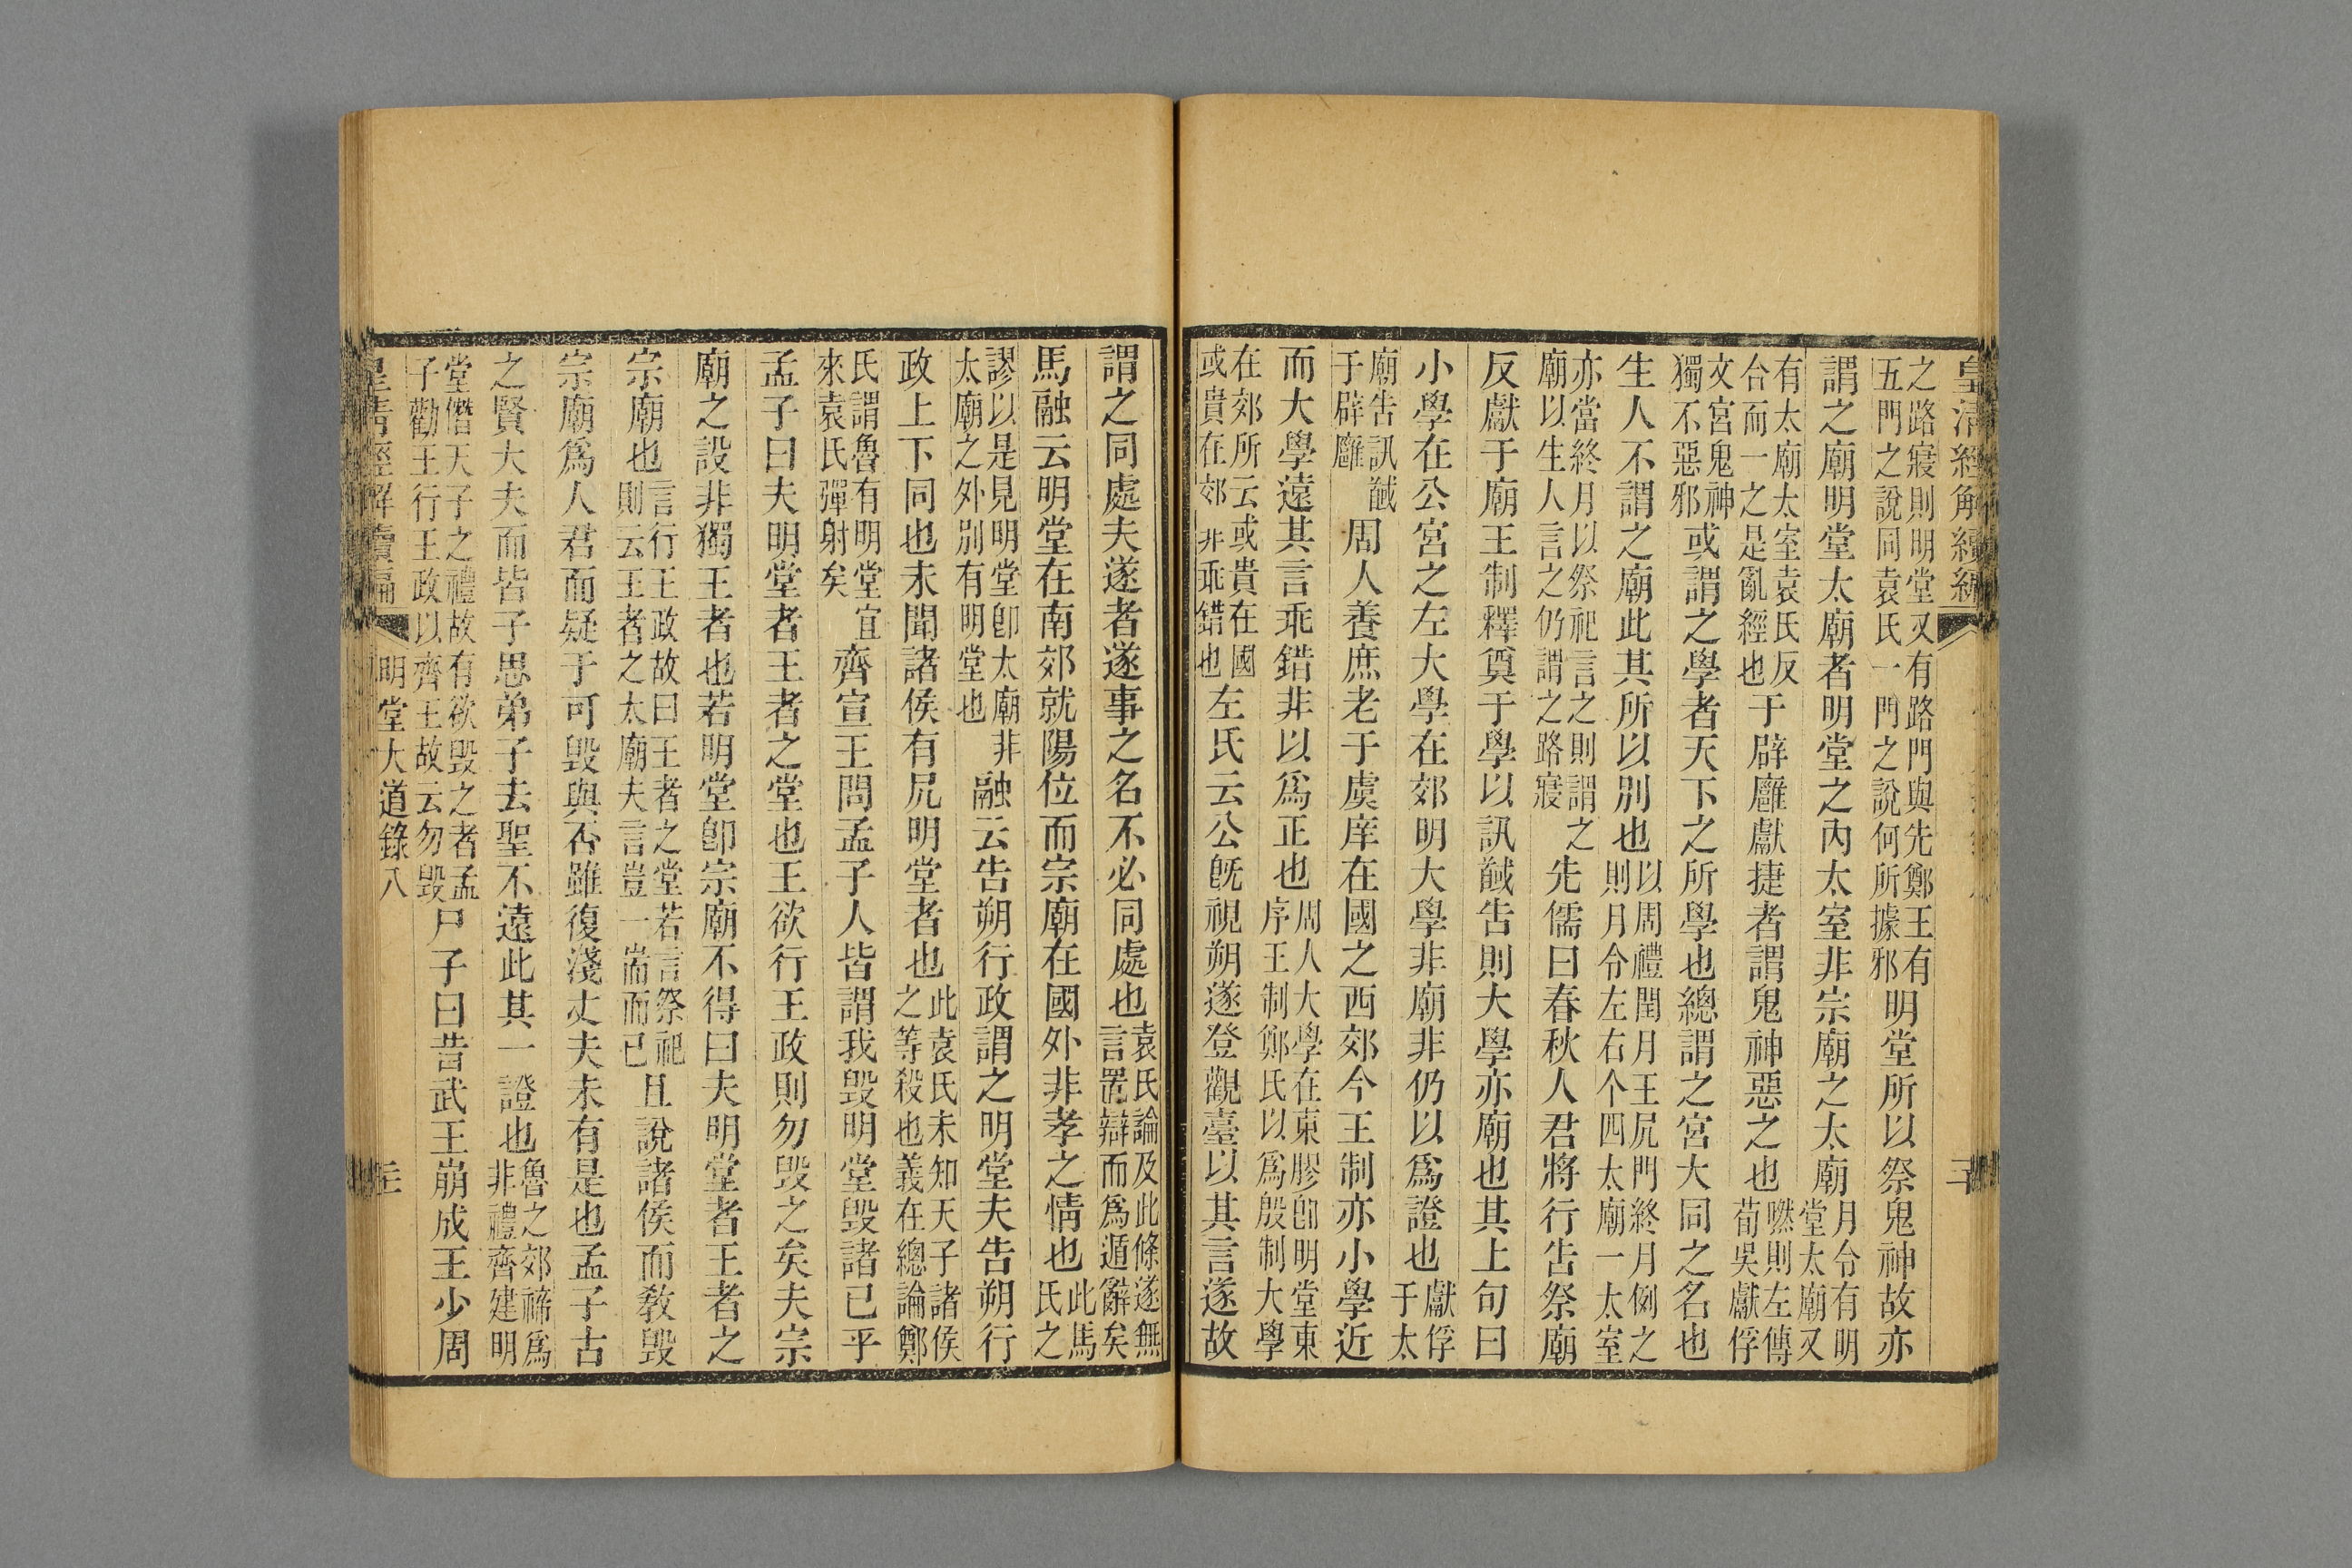 皇清經解續編
之路寢則明堂又有路門與先鄭王有
五門之說同袁氏一門之說何所據邪
明堂所以祭鬼神故亦
謂之廟明堂太廟者明堂之內太室非宗廟之太廟
月令有明
堂太廟又
有太廟太室袁氏反
合而一之是亂經也
于辟廱獻捷者謂鬼神惡之也
嘫則左傳
荀吳獻俘
文宮鬼神
獨不惡邪
或謂之學者天下之所學也總謂之宮大同之名也
生人不謂之廟此其所以別也
以周禮閏月王凥門終月例之
則月令左右个四太廟一太室
亦當終月以祭祀言之則謂之
廟以生人言之仍謂之路寢
先儒曰春秋人君將行告祭廟
反獻于廟王制釋奠于學以訊馘告則大學亦廟也其上句曰
小學在公宮之左大學在郊明大學非廟非仍以爲證也
獻俘
于太
廟告訊馘
于辟廱
周人養庶老于虞庠在國之西郊今王制亦小學近
而大學遠其言乖錯非以爲正也
周人大學在東膠卽明堂東
序王制鄭氏以爲殷制大學
在郊所云或貴在國
或貴在郊非乖錯也
左氏云公旣視朔遂登觀臺以其言遂故
謂之同處夫遂者遂事之名不必同處也
袁氏論及此條遂無
言置辯而爲遁辭矣
馬融云明堂在南郊就陽位而宗廟在國外非孝之情也
此馬
氏之
謬以是見明堂卽太廟非
太廟之外別有明堂也
融云告朔行政謂之明堂夫告朔行
政上下同也未聞諸侯有凥明堂者也
此袁氏未知天子諸侯
之等殺也義在總論鄭
氏謂魯有明堂宜
來袁氏彈射矣
齊宣王問孟子人皆謂我毀明堂毀諸已乎
孟子曰夫明堂者王者之堂也王欲行王政則勿毀之矣夫宗
廟之設非獨王者也若明堂卽宗廟不得曰夫明堂者王者之
宗廟也
言行王政故曰王者之堂若言祭祀
則云王者之太廟夫言豈一耑而已
且說諸侯而敎毀
宗廟爲人君而疑于可毀與否雖復淺丈夫未有是也孟子古
之賢大夫而皆子思弟子去聖不遠此其一證也
魯之郊禘爲
非禮齊建明
堂僭天子之禮故有欲毀之者孟
子勸王行王政以齊王故云勿毀
尸子曰昔武王崩成王少周
皇清經解續編
明堂大道錄八